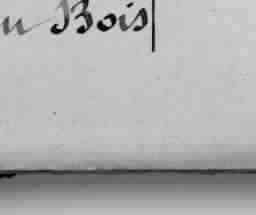 u Bois